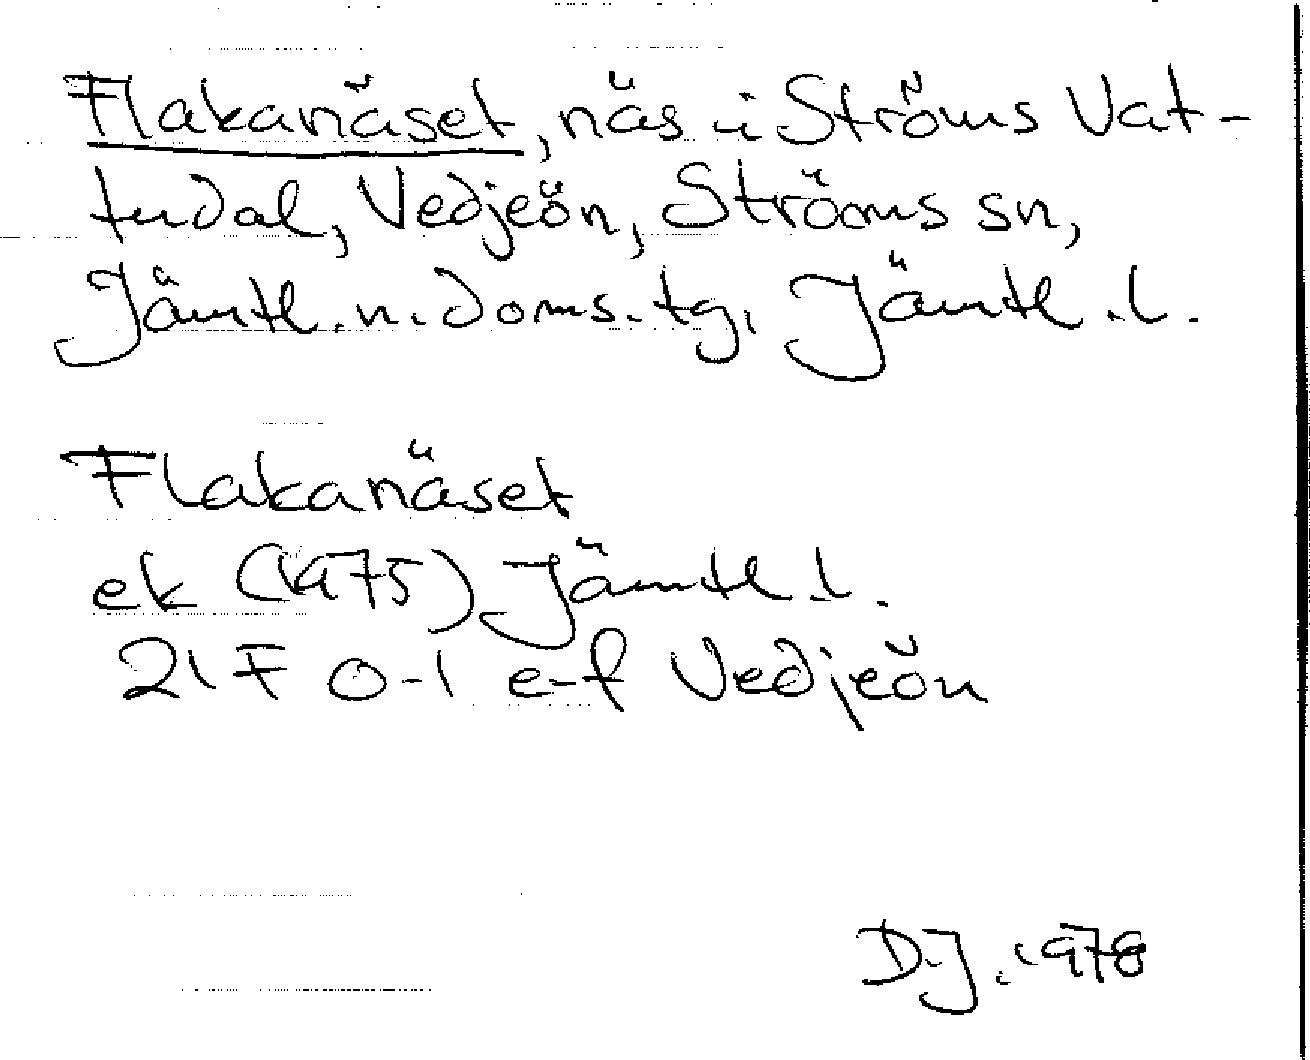 Flakanäset, näs i Ströms Vat-
tudal, Vedjeön, Ströms sn,
Jämtl. n. doms. tg, Jämtl. l.
Flakanäset
ek (1975) Jämtl l.
21F 0-1 e-f Vedjeön
D.J. 1978